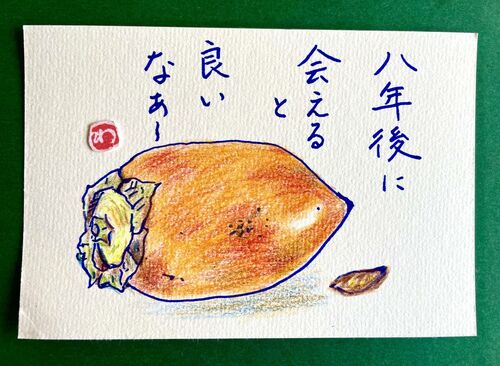 八年後に
会えると
良い
なぁ〜